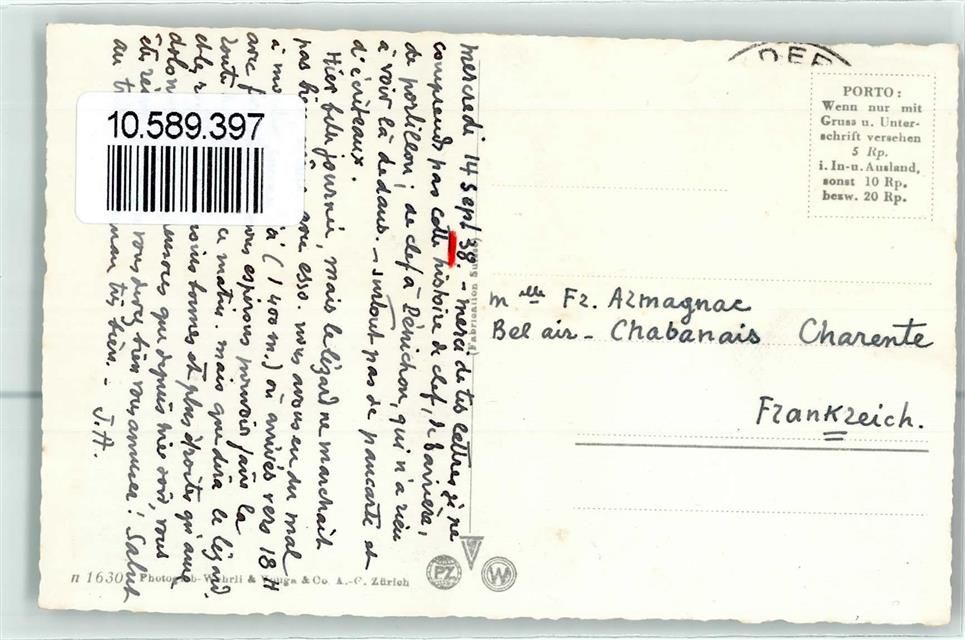 mercredi 14 Sept 38. - merci de tes lettres. je ne
comprends pas cette histoire de clef, de barrière,
de portillon, de clef à Pénichon, qui n'a rien
à voir là dedans. - surtout pas de pancarte et
d'écriteaux.
Hier belle journée, mais le lézard ne marchait
pas avec esso. nous avons eu du mal
à (1400 m.) où arrivés vers 18 H
avec nous espérons pouvoir faire la
route ce matin. mais que dira le lézard
et les moins bonnes et plus étroites qu'aux
que depuis hier soir, vous
vous devez bien vous amuser! Salut
au très bien. - J.A.
10.589.397
DEF
PORTO:
Wenn nur mit
Gruss u. Unter-
schrift versehen
5 Rp.
i. In- u. Ausland,
sonst 10 Rp.
bezw. 20 Rp.
(Fabrication Suisse)
Mlle Fr. Armagnac
Bel air - Chabanais Charente
Frankreich.
n 1630 Photogr.-Wehrli & Vouga & Co. A.-G. Zürich
PZ
W